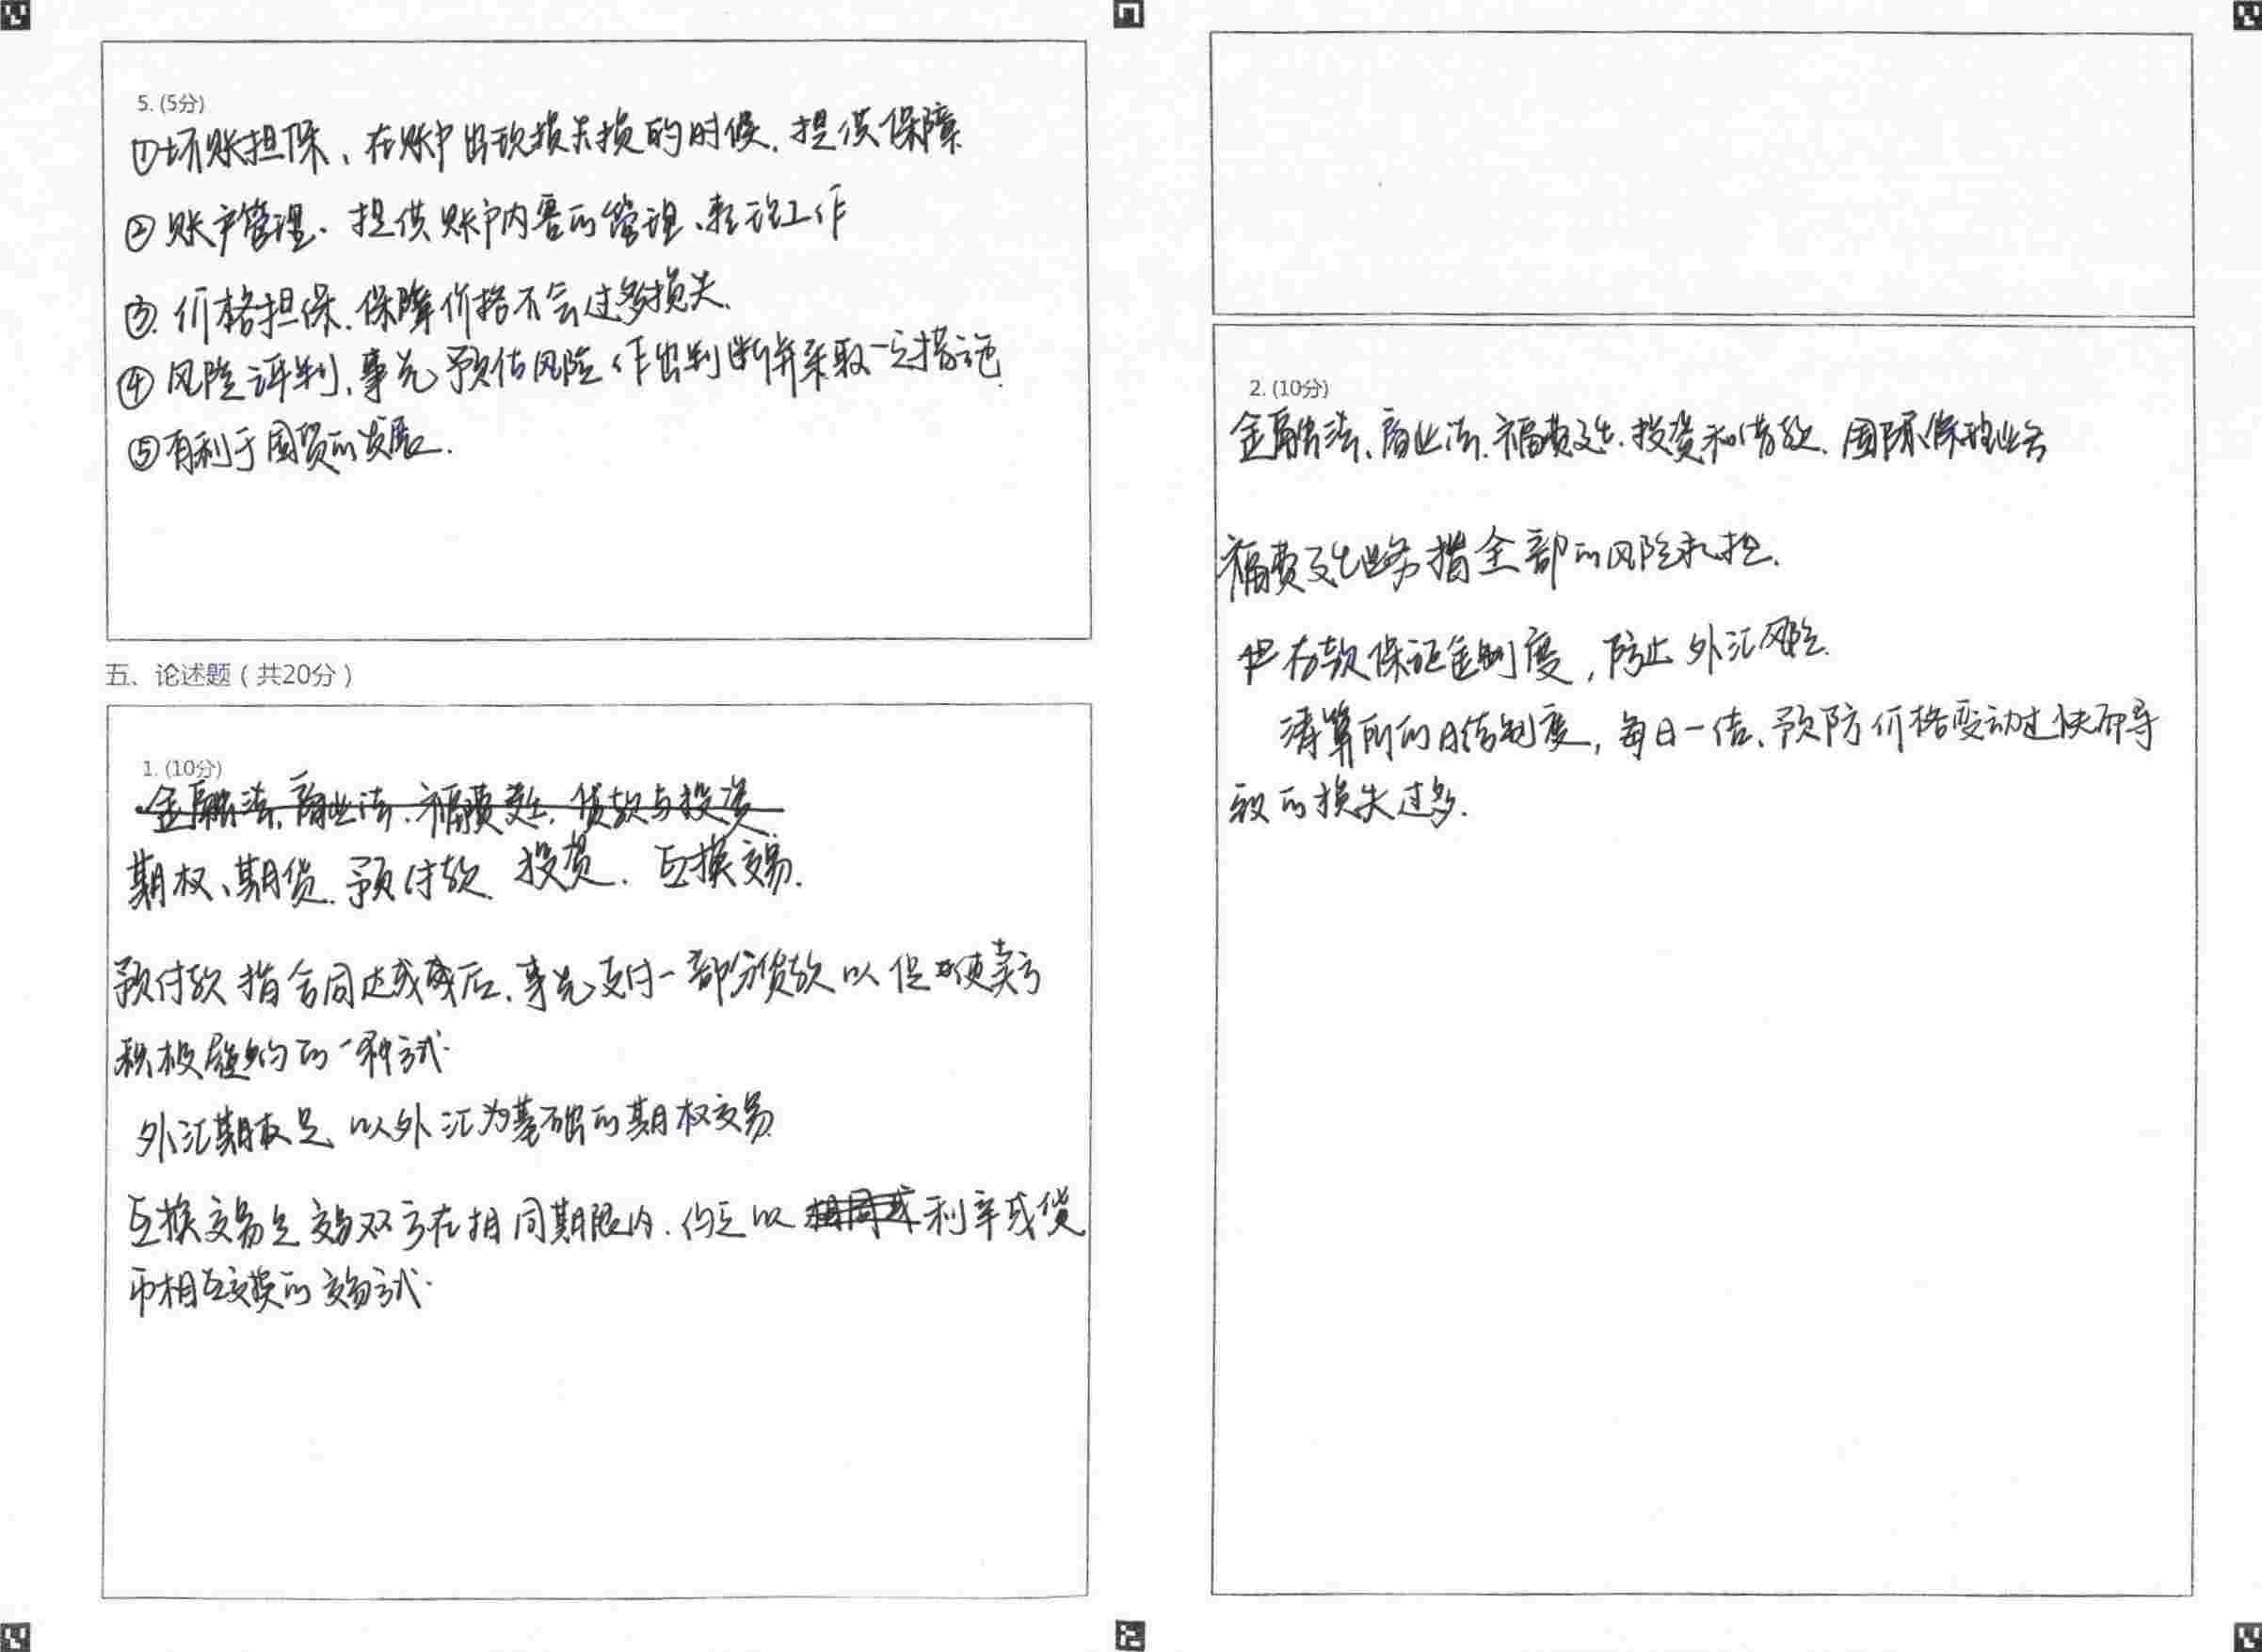 5. (5分)
①坏账担保、在账户出现损失损的时候.提供保障.
②账户管理.提供账户内容的管理、整理工作
③.价格担保.保障价格不会过多损失.
④风险评判、事先预估风险作出判断并采取一定措施.
⑤有利于国贸的发展.
五、论述题（共20分）
1. (10分)
金融法、商业法、福费廷、贷款与投资
期权、期货.预付款.投资.互换交易.
预付款指合同达成后,事先支付一部分货款以促使卖方
积极履约的一种方式.
外汇期权是以外汇为基础的期权交易
互换交易是交易双方在相同期限内.约定以利率或货
币相互交换的交易方式.
2. (10分)
金融法、商业法.福费廷.投资和借款.国际保理业务
福费廷业务指全部的风险承担.
存款保证金制度,防止外汇风险.
清算所的日结制度,每日一结、预防价格变动过快而导
致的损失过多.